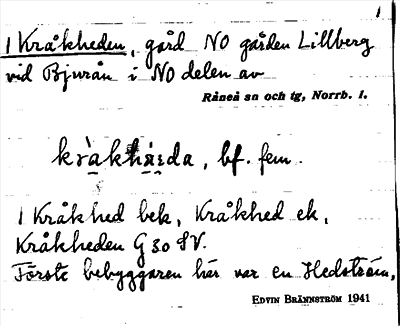 1
1 Kråkheden, gård NO gården Lillberg
vid Bjurån i NO delen av
Råneå sn och tg, Norrb. l.
bf. fem.
1 Kråkhed bek, Kråkhed ek,
Kråkheden G 30 SV.
Förste bebyggaren här var en Hedström,
EDVIN BRÄNNSTRÖM 1941